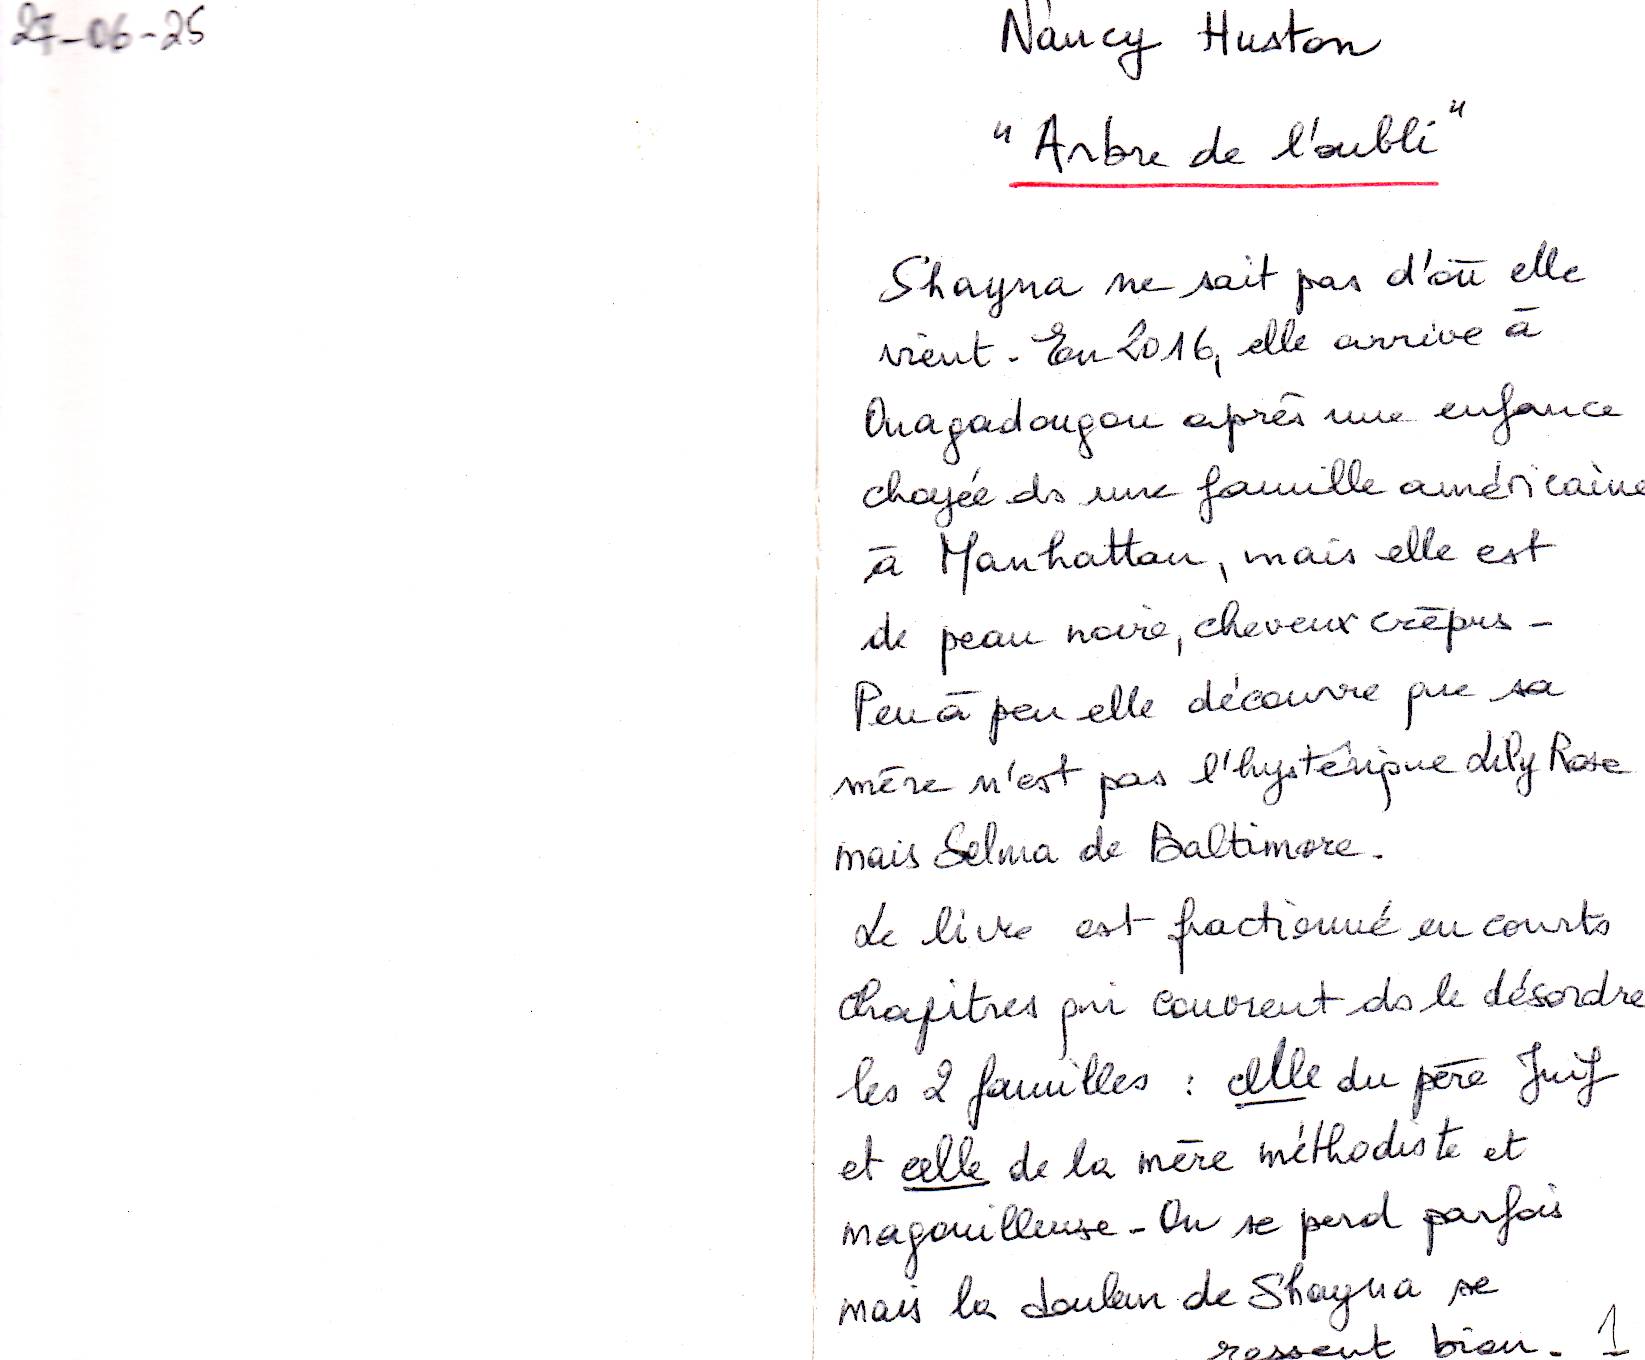 27-06-25
Nancy Huston
"Arbre de l'oubli"
Shayna ne sait pas d'où elle
vient. En 2016, elle arrive à
Ouagadougou après une enfance
choyée ds une famille américaine
à Manhattan, mais elle est
de peau noire, cheveux crépus -
Peu à peu elle découvre que sa
mère n'est pas l'hystérique Lily Rose
mais Selma de Baltimore.
Le livre est fractionné en courts
chapitres qui couvrent ds le désordre
les 2 familles : celle du père Juif
et celle de la mère méthodiste et
magouilleuse - On se perd parfois
mais la douleur de Shayna se
ressent bien. 1